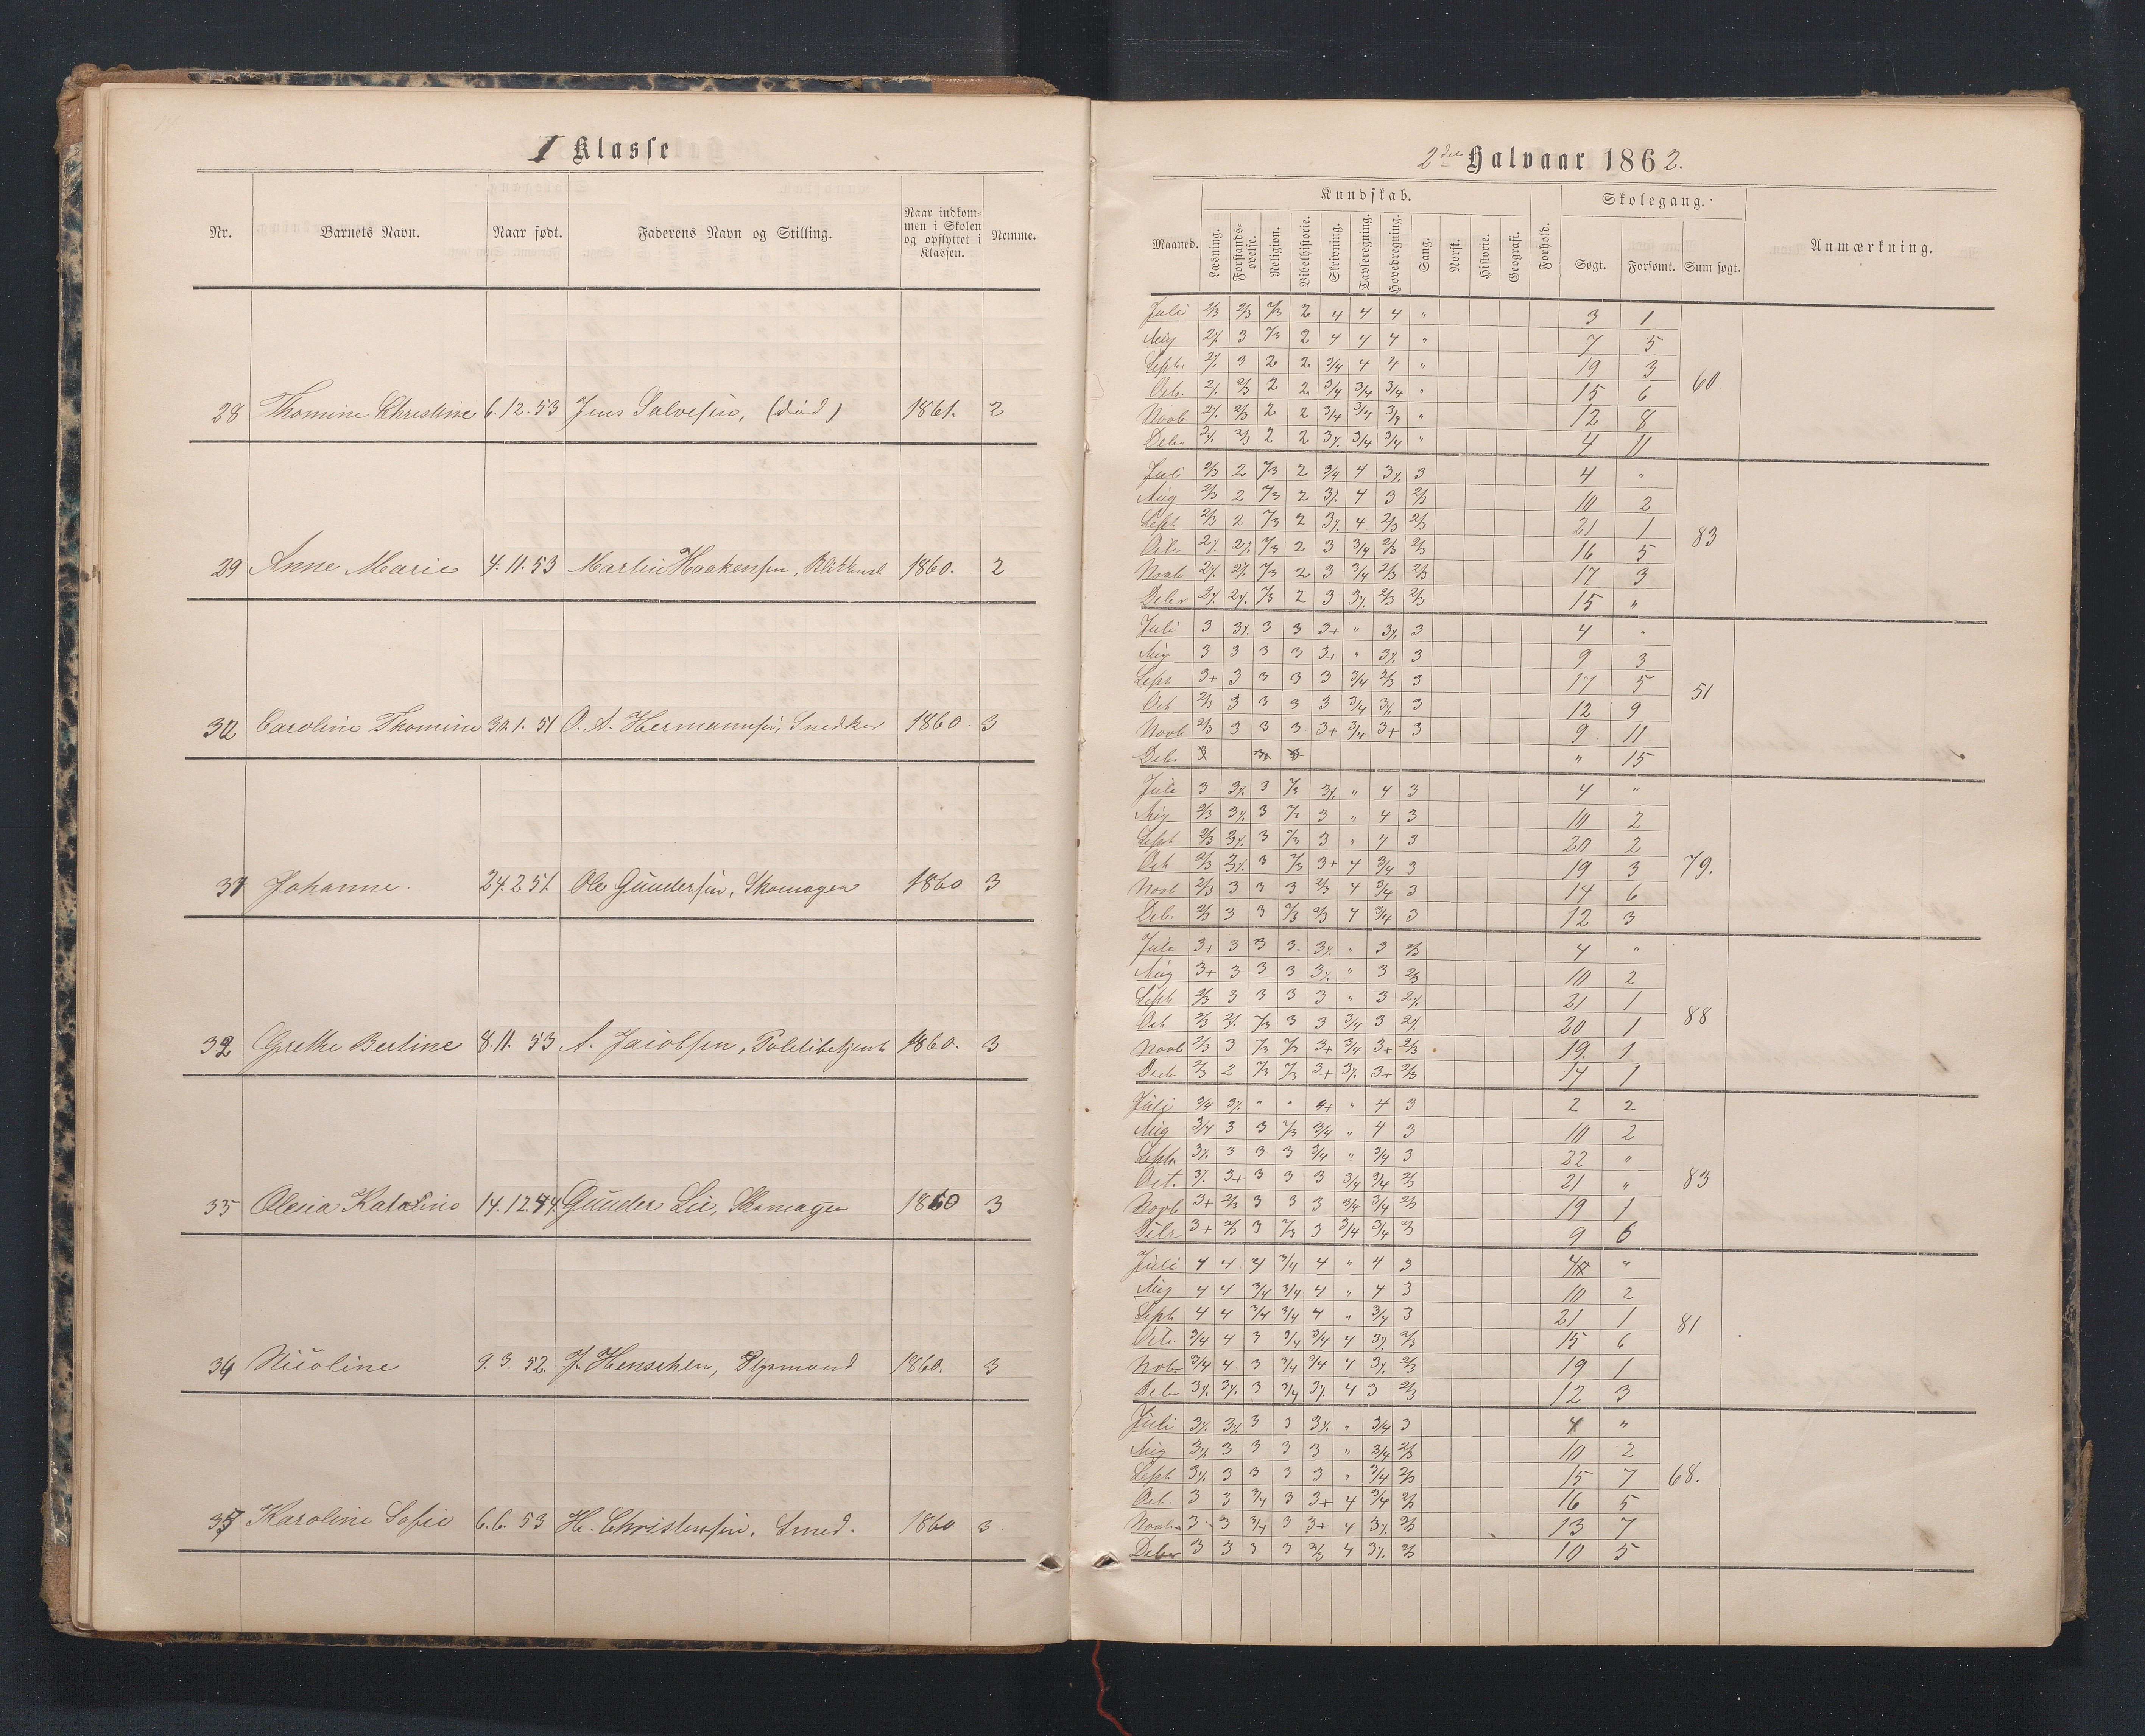 I Klasse
Nr. Barnets Navn. Naar født. Faderens Navn og Stilling. Naar indkommen i Skolen og opflyttet i Klassen. Nemme.
28 Thomine Christine 6.12.53 Jens Salvesen, (død) 1861. 2
29 Anne Marie 4.11.53 Martin Haakensen, 1860. 2
30 Caroline Thomine 30.1.51 O. A. Hermannsen, Snedker 1860 3
31 Johanne. 24.2 51. Ole Gundersen, Skomager 1860 3
32 Grethe Bertine 8.11.53 A. Jacobsen, Politibetjent 1860. 3
33 Olesia Katarine 14.12. Gunder Lie, Skomager 1860 3
34 Nicoline 9.3.52. J. Henschen, Styrmand 1860. 3
35 Karoline Sofie 6.6.53 H. Christensen, Smed. 1860 3
2den Halvaar 1862.
Maaned. Kundskab. Forhold. Skolegang. Anmærkning.
Læsning. Forstandsøvelse. Religion. Bibelhistorie. Skrivning. Tavleregning. Hovedregning. Sang. Norsk. Historie. Geografi. Søgt. Forsømt. Sum søgt.
Juli 2/3 2/3 2/3 2 4 4 4 " 3 1
Aug 2÷ 3 2/3 2 4 4 4 " 7 5
Sept. 2÷ 3 2 2 3/4 4 4 " 19 3
60
Octr. 2÷ 2/3 2 2 3/4 3/4 3/4 " 15 6
Novb 2÷ 2/3 2 2 3/4 3/4 3/4 " 12 8
Debr 2÷ 2/3 2 2 3÷ 3/4 3/4 " 4 11
Juli 2/3 2 2/3 2 3/4 4 3÷ 3 4 "
Aug 2/3 2 2/3 2 3÷ 4 3 2/3 10 2
Sept 2/3 2 2/3 2 3÷ 4 2/3 2/3 21 1
83
Octr 2÷ 2÷ 2/3 2 3 3/4 2/3 2/3 16 5
Novb 2÷ 2÷ 2/3 2 3 3/4 2/3 2/3 17 3
Debr 2÷ 2÷ 2/3 2 3 3÷ 2/3 2/3 15 "
Juli 3 3÷ 3 3 3+ " 3÷ 3 4 "
Aug 3 3 3 3 3+ " 3÷ 3 9 3
Sept 3+ 3 3 3 3 3/4 2/3 3 17 5
51
Oct 2/3 3 3 3 3 3/4 3÷ 3 12 9
Novb 2/3 3 3 3 3+ 3/4 3+ 3 9 11
Deb. " 15
Juli 3 3÷ 3 2/3 3÷ " 4 3 4 "
Aug 2/3 3÷ 3 2/3 3 " 4 3 10 2
Sept 2/3 3÷ 3 2/3 3 " 4 3 20 2
79.
Oct 2/3 3÷ 3 2/3 3+ 4 3/4 3 19 3
Novb 2/3 3 3 3 2/3 4 3/4 3 14 6
Deb. 2/3 3 3 2/3 2/3 4 3/4 3 12 3
Juli 3+ 3 3 3. 3÷ " 3 2/3 4 "
Aug 3+ 3 3 3 3÷ " 3 2/3 10 2
Sept 2/3 3 3 3 3 " 3 2÷ 21 1
88
Oct 2/3 2÷ 2/3 3 3 3/4 3 2÷ 20 1
Novb 2/3 3 2/3 2/3 3+ 3/4 3+ 2/3 19. 1
Deb 2/3 2 2/3 2/3 3+ 3÷ 3+ 2/3 14 1
Juli 3/4 3÷ " " 4+ " 4 3 2 2
Aug 3/4 3 3 2/3 3/4 " 4 3 10 2
Sept. 3÷ 3 3 3 3/4 " 3/4 3 22 "
83
Oct. 3÷ 3+ 3 3 3 3/4 3/4 2/3 21 "
Novb 3+ 2/3 3 3 3 3/4 3/4 2/3 19 1
Debr 3+ 2/3 3 2/3 3 3/4 3/4 2/3 9 6
Juli 4 4 4 3/4 4 " 4 3 4 "
Aug 4 4 3/4 3/4 4 " 4 3 10 2
Sept 4 4 3/4 3/4 4 " 3/4 3 21 1
81
Oct. 3/4 4 3 3/4 3/4 4 3÷ 2/3 15 6
Nob 3/4 4 3 3/4 3/4 4 3÷ 2/3 19 1
Deb 3÷ 3÷ 3 3/4 3÷ 4 3 2/3 12 3
Juli 3÷ 3÷ 3 3 3÷ " 3/4 3 4 "
Aug 3÷ 3 3 3 3 " 3/4 2/3 10 2
Sept 3÷ 3 3 3 3 " 3/4 2/3 15 7
68.
Oct. 3 3 3/4 3 3+ 4 3/4 2/3 16 5
Novb 3 3 3/4 3 3+ 4 3÷ 2/3 13 7
Debr 3 3 3 3 2/3 4 3÷ 2/3 10 5